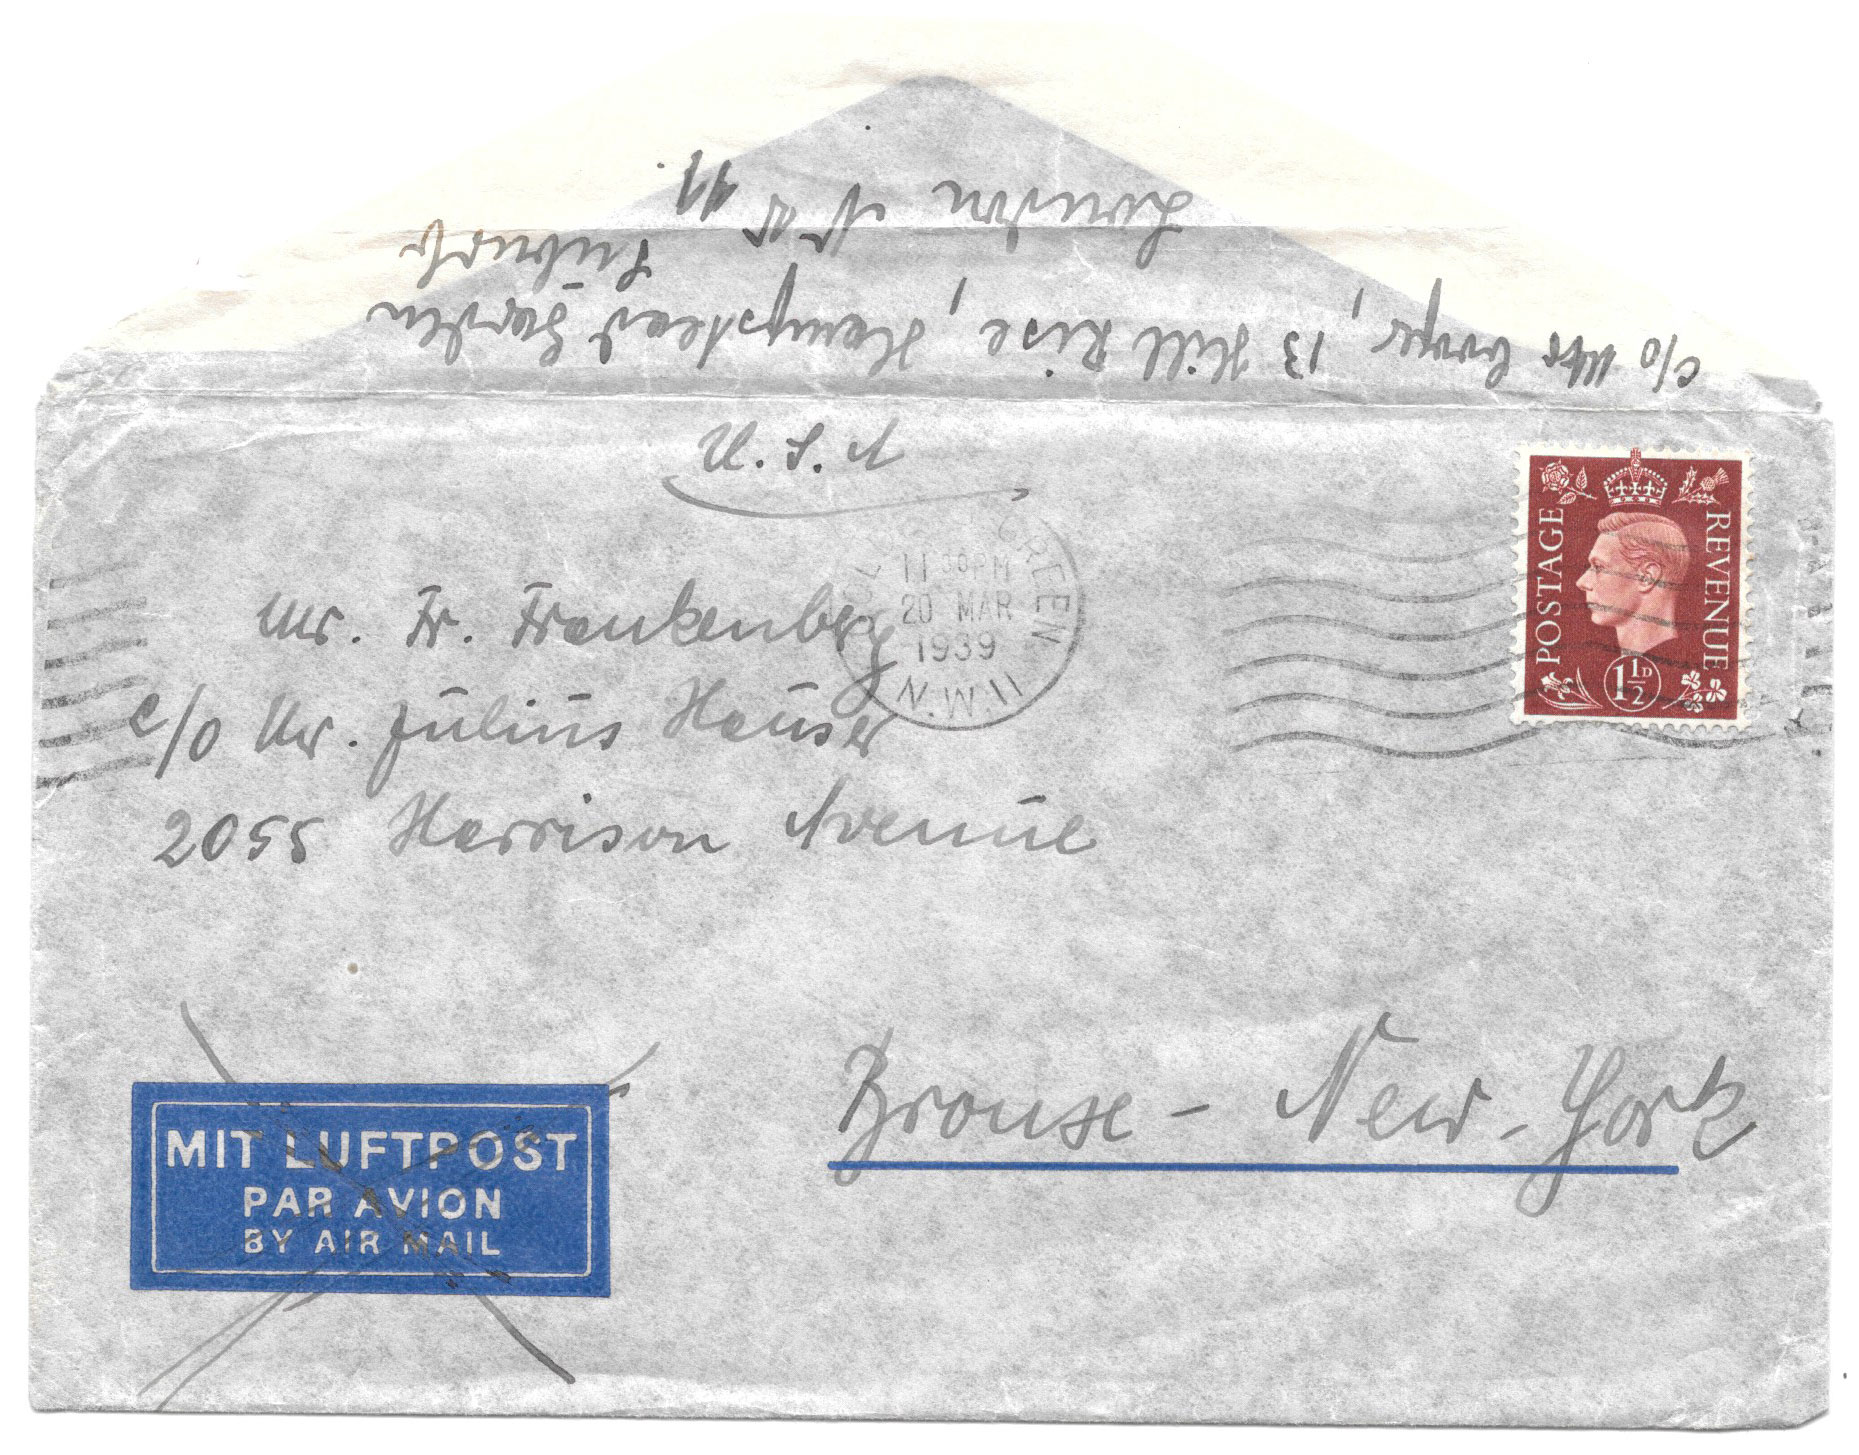 c/o Mrs Cooper, 13 Hill Rise, Hampstead Garden
Suburb
London N W 11.
11 30 PM
20 MAR
1939
GREEN
N.W.11
POSTAGE
REVENUE
1½D
Mr. Fr. Frankenberg
c/o Mr. Julius Hauser
2055 Harrison Avenue
Bronxe - New-York
MIT LUFTPOST
PAR AVION
BY AIR MAIL